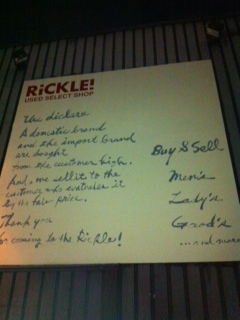 RiCKLE!
USED SELECT SHOP
We diclare
A domestic brand
and the import brand
are bought
from the customer high.
And, we sell it to the
customer who evaluates it
by the fair price.
Thank you
for coming to the Rickle!
Buy & Sell
Men's
Lady's
Good's
...and more